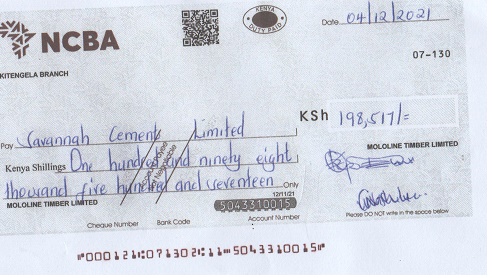 NCBA
KENYA
DUTY PAID
Date 04/12/2021
07-130
KITENGELA BRANCH
Pay Savannah Cement Limited
KSh 198,517/=
Kenya Shillings One hundred and ninety eight
thousand five hundred and seventeen Only
MOLOLINE TIMBER LIMITED
12/11/21
MOLOLINE TIMBER LIMITED
5043310015
Cheque Number Bank Code Account Number
Please DO NOT write in the space below
"000121:071302:11"5043310015"